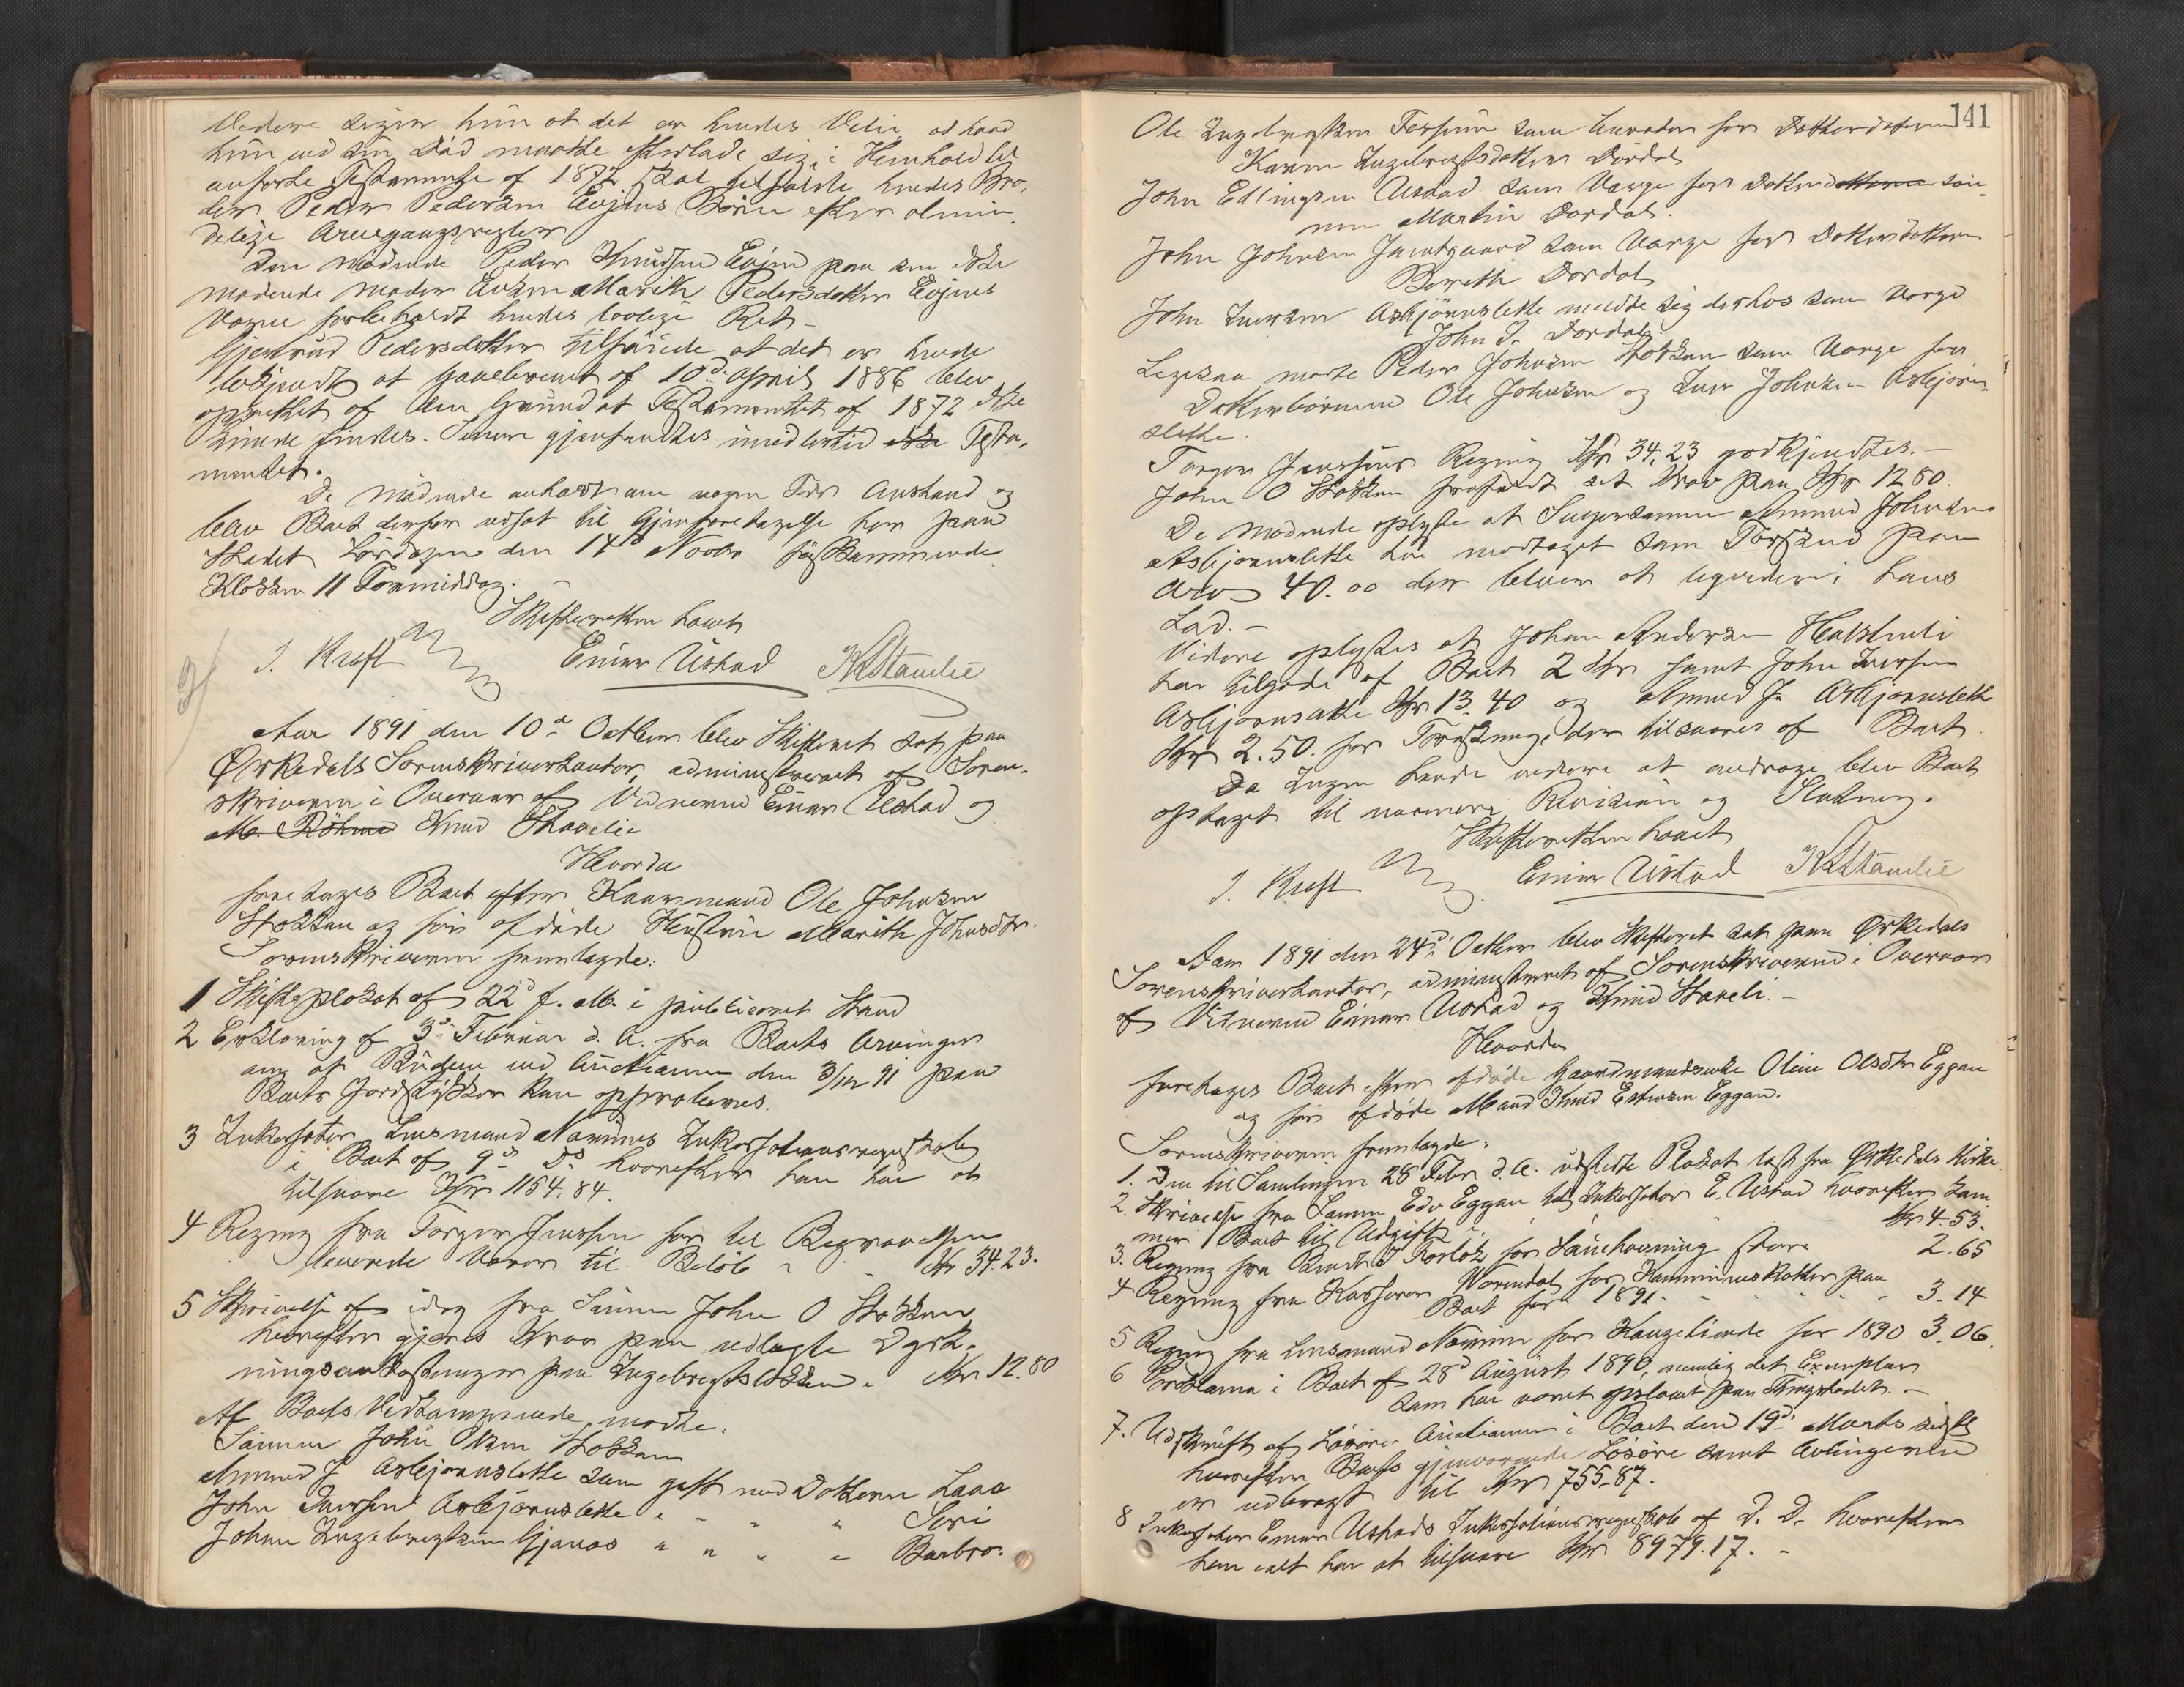 Videre siger hun at det er hendes Vilie at hvad
hun ved sin Död maatte efterlade sig i Henhold til
anförte Testamente af 1872 skal tilfalde hendes Bro-
der Peder Pedersen Evjens Börn efter almin-
delige Arvegangsregler
Den mödende Peder Knudsen Evjen paa sin ikke
mödende Moder Marith Pedersdatter Evjens
Vegne forbeholdt hendes lovlige Ret –
Gjertrud Pedersdatter tilföiede at det er hende
bekjendt at Gavebrevet af 10d April 1886 blev
oprettet af den Grund at Testamentet af 1872 ikke
kunde findes. Senere gjenfandtes imidlertid ikke Testa-
mentet.
De mödende anholdt om nogen Tids Anstand og
blev Boet derfor udsat til Gjenforetagelse her paa
Stedet Lördagen den 14de Novbr förstkommende
Klokken 11 Formiddag. –
Skifteretten hævet
J. Kreft Einar Ustad K Stavelie
Aar 1891 den 10d Octbr blev Skifteret sat paa
Ørkedals Sorenskriverkontor, administreret af Soren-
skriveren i Overvær af Vidnerne Einar Ustad og
M. Röhme Knud Stavelie
Hvorda
foretages Boet efter Kaarmand Ole Johnsen
Stokken og för afdöde Hustru Marith Johnsdtr.
Sorenskriveren fremlagde:
1 Skifteplakat af 22d f. M. i publiceret Stand
2 Erklæring af 3d Februar d. A. fra Boets Arvinger
om at Budene ved Auctionen den 3/12 91 paa
Boets Jordstykker kan approberes.
3 Inkassator Lensmand Nammes Inkassationsregnskab
i Boet af 9d Ds hvorefter han har at
tilsvare Kr 1154.84.
4 Regning fra Torger Jenssen for til Begravelsen
leverede Varer til Belöb " " Kr 34.23.
5 Skrivelse af idag fra Sönnen John O Stokken
hvorefter gjöres Krav paa udlagte Dyrk-
ningsomkostninger paa Ingebrigtslökken " Kr 12.80
Af Boets Vedkommende mödte:
Sönnen John Olsen Stokken
Amund J Asbjörnslette som gift med Datteren Lava
John Iversen Asbjörnslette " " " " Siri
Johan Ingebrigtsen Gjønes " " " " Barbro.
141
Ole Ingebrigtsen Forseun som Curator for Datterdatteren
Karen Ingebrigtsdatter Dördal
John Ellingsen Ustad som Værge for Datterdatteren sön-
nen Martin Dördal.
John Johnsen Jamtgaard som Værge for Datterdatteren
Bereth Dordal
John Iversen Asbjörnslette meldte sig derhos som Værge
John I. Dördal
Ligesaa mödte Peder Johnsen Stokken som Værge for
Datterbörnene Ole Johnsen og Iver Johnsen Asbjörn-
slette.
Torger Jenssens Regning Kr 34,23 godkjendtes. –
John O Stokken frafaldt sit Krav paa Kr 12 80.
De mödende oplyste at Svigersönnen Amund Johnsen
Asbjørnslette har modtaget som Forskud paa
Arv 40.00 der bliver at liquidere i hans
Lod. –
Videre oplystes at Johan Andersen Holstuli
har tilgode af Boet 2 Kr samt John Iversen
Asbjörnslette Kr 13.40 og Amund J. Asbjørnslette
Kr 2.50. for Forretning, der tilsvares af Boet.
Da Ingen havde videre at andrage blev Boet
optaget til nærmere Revision og Slutning.
Skifteretten hævet
J. Kreft Einar Ustad K Stavelie
Aar 1891 den 24d Octbr blev Skifteret sat paa Ørkedals
Sorenskriverkontor, administreret af Sorenskriveren i Overvær
af Vidnerne Einar Ustad og Knud Staveli. –
Hvorda
foretages Boet efter afdöde Gaardmandsenke Oline Olsdtr Eggan
og för afdöde Mand Knud Estensen Eggan.
Sorenskriveren fremlagde:
1. Den til Samlingen 28 Febr d. A. udstedte Plakat læst fra Ørkedals Kirke
2. Skrivelse fra Sönnen Edv Eggan til Inkassator E. Ustad hvorefter kom-
mer Boet til Udgift Kr 4.53.
3. Regning fra for 2.65
4 Regning fra Kasserer Wormdal for Kommuneskatter paa
Boet for 1891 " " " " " 3.14
5 Regning fra Lensmand Namme for Kongetiende for 1890 3.06.
6 Proklama i Boet af 28d August 1890, nemlig det Exemplar
som har været opslaaet paa Thingstedet. –
7. Udskrift af Løsøre Auctionen i Boet den 19d Marts sidstl
hvorefter Boets gjenværende Løsøre samt Avlingerne
er udbragt til Kr 755.87.
8 Inkassator Einar Ustads Inkassationsregnskab af D. D. hvorefter
han ialt har at tilsvare Kr 8979.17. –